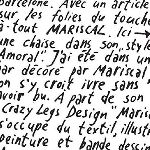 barcelone. Avec un article
sur les folies du touche
à-tout MARISCAL. Ici →
une chaise dans son "style
Amoral". J'ai été dans un
bar décoré par Mariscal,
on s'y croit ivre sans
avoir bu. A part de son
"Crazy Legs Design" Maris
s'occupe du textil, illust
peinture et bande dessin